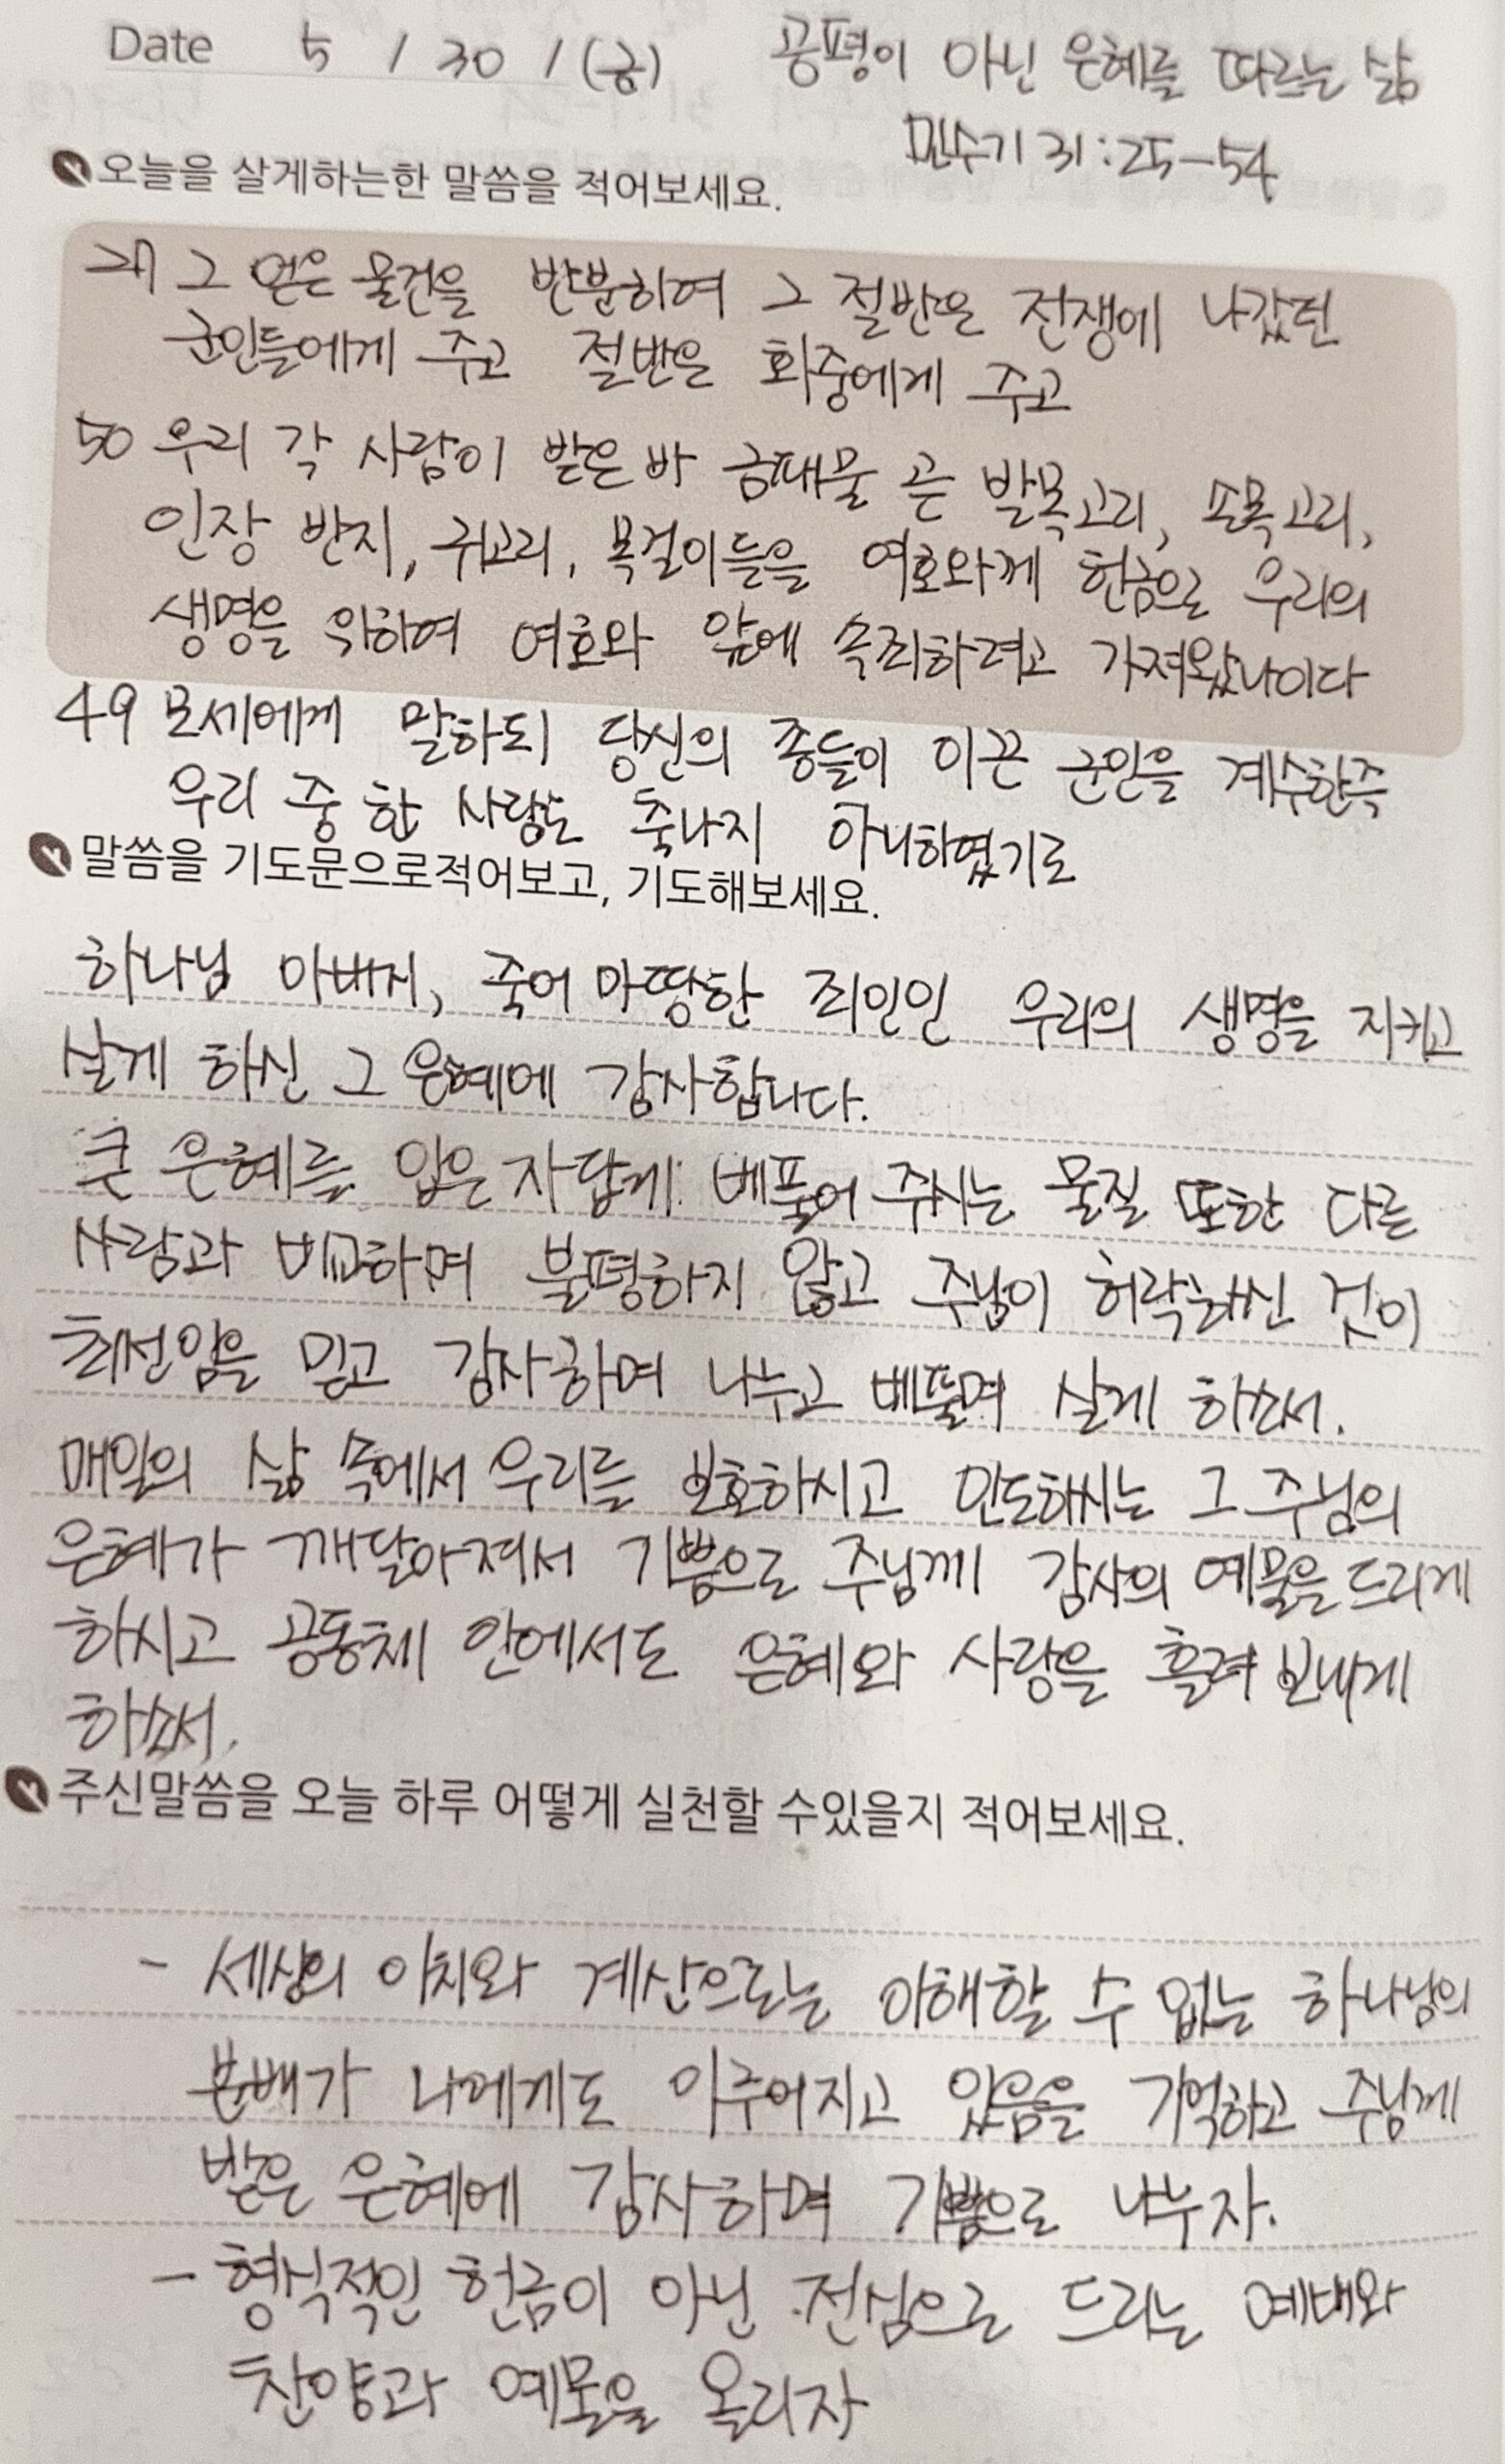 Date 5 / 30 / (금) 공평이 아닌 은혜를 따르는 삶
민수기 31:25-54
오늘을 살게하는한 말씀을 적어보세요.
27 그 얻은 물건을 반분하여 그 절반은 전쟁에 나갔던
군인들에게 주고 절반은 회중에게 주고
50 우리 각 사람이 받은 바 금패물 곧 발목고리, 손목고리,
인장 반지, 귀고리, 목걸이들을 여호와께 헌금으로 우리의
생명을 위하여 여호와 앞에 속죄하려고 가져왔나이다
49 모세에게 말하되 당신의 종들이 이끈 군인을 계수한즉
우리 중 한 사람도 축나지 아니하였기로
말씀을 기도문으로적어보고, 기도해보세요.
하나님 아버지, 죽어 마땅한 죄인인 우리의 생명을 지키고
살게 하신 그 은혜에 감사합니다.
큰 은혜를 입은 자답게 베풀어 주시는 물질 또한 다른
사람과 비교하며 불평하지 않고 주님이 허락하신 것이
최선임을 믿고 감사하며 나누고 베풀며 살게 하소서.
매일의 삶 속에서 우리를 보호하시고 인도하시는 그 주님의
은혜가 깨달아져서 기쁨으로 주님께 감사의 예물을 드리게
하시고 공동체 안에서도 은혜와 사랑을 흘려 보내게
하소서.
주신말씀을 오늘 하루 어떻게 실천할 수있을지 적어보세요.
- 세상의 이치와 계산으로는 이해할 수 없는 하나님의
분배가 나에게도 이루어지고 있음을 기억하고 주님께
받은 은혜에 감사하며 기쁨으로 나누자.
- 형식적인 헌금이 아닌 전심으로 드리는 예배와
찬양과 예물을 올리자